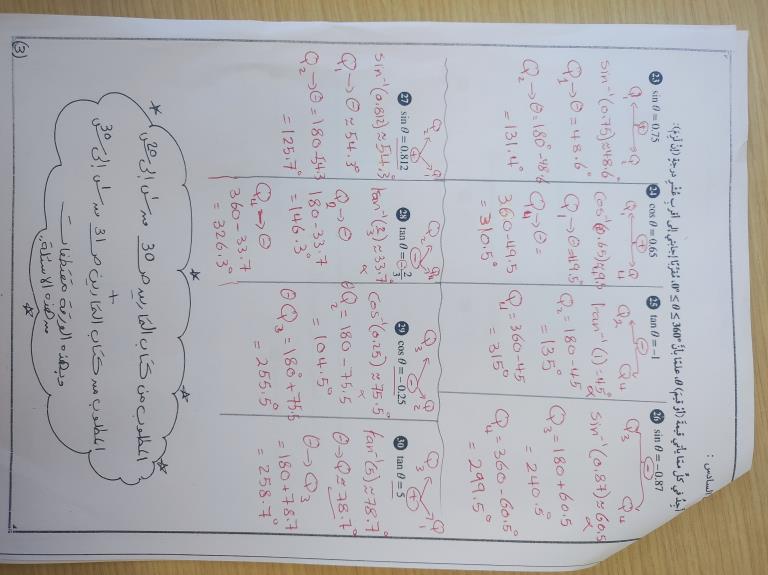 السادس :
أجد في كل مما يأتي قيمة (أو قيم) θ، علما بأن 0° ≤ θ ≤ 360°، مقربا إجابتي إلى أقرب عشر درجة (إن لزم):
23 sin θ = 0.75
Q₂ Q₁
+
sin⁻¹(0.75) ≈ 48.6°
Q₁ → θ = 48.6°
Q₂ → θ = 180° - 48.6
= 131.4°
24 cos θ = 0.65
Q₁ Q₄
+
cos⁻¹(0.65) ≈ 49.5
Q₁ → θ = 49.5°
Q₄ → θ =
360 - 49.5
= 310.5°
25 tan θ = -1
Q₂ Q₄
-
tan⁻¹(1) = 45°
α
Q₂ = 180 - 45
= 135°
Q₄ = 360 - 45
= 315°
26 sin θ = -0.87
Q₃ Q₄
-
sin⁻¹(0.87) ≈ 60.5
α
Q₃ = 180 + 60.5
= 240.5°
Q₄ = 360 - 60.5°
= 299.5°
27 sin θ = 0.812
Q₂ Q₁
+
sin⁻¹(0.812) ≈ 54.3°
Q₁ → θ ≈ 54.3°
Q₂ → θ = 180 - 54.3
= 125.7°
28 tan θ = -2/3
Q₂ Q₄
-
tan⁻¹(2/3) ≈ 33.7°
α
Q₂ → θ
180 - 33.7
= 146.3°
Q₄ → θ
360 - 33.7
= 326.3°
29 cos θ = -0.25
Q₃ Q₂
-
cos⁻¹(0.25) ≈ 75.5°
α
θQ₂ = 180 - 75.5
= 104.5°
θQ₃ = 180° + 75.5
= 255.5°
30 tan θ = 5
Q₃ Q₁
+
tan⁻¹(5) ≈ 78.7°
θ → Q ≈ 78.7°
θ → Q₃
= 180 + 78.7
= 258.7°
المطلوب من كتاب التمارين ص 30 من س1 إلى س20
+
المطلوب من كتاب التمارين ص 31 من س إلى س30
وبهذه الورقة مقتطفات
من هذه الاسئلة.
(3)